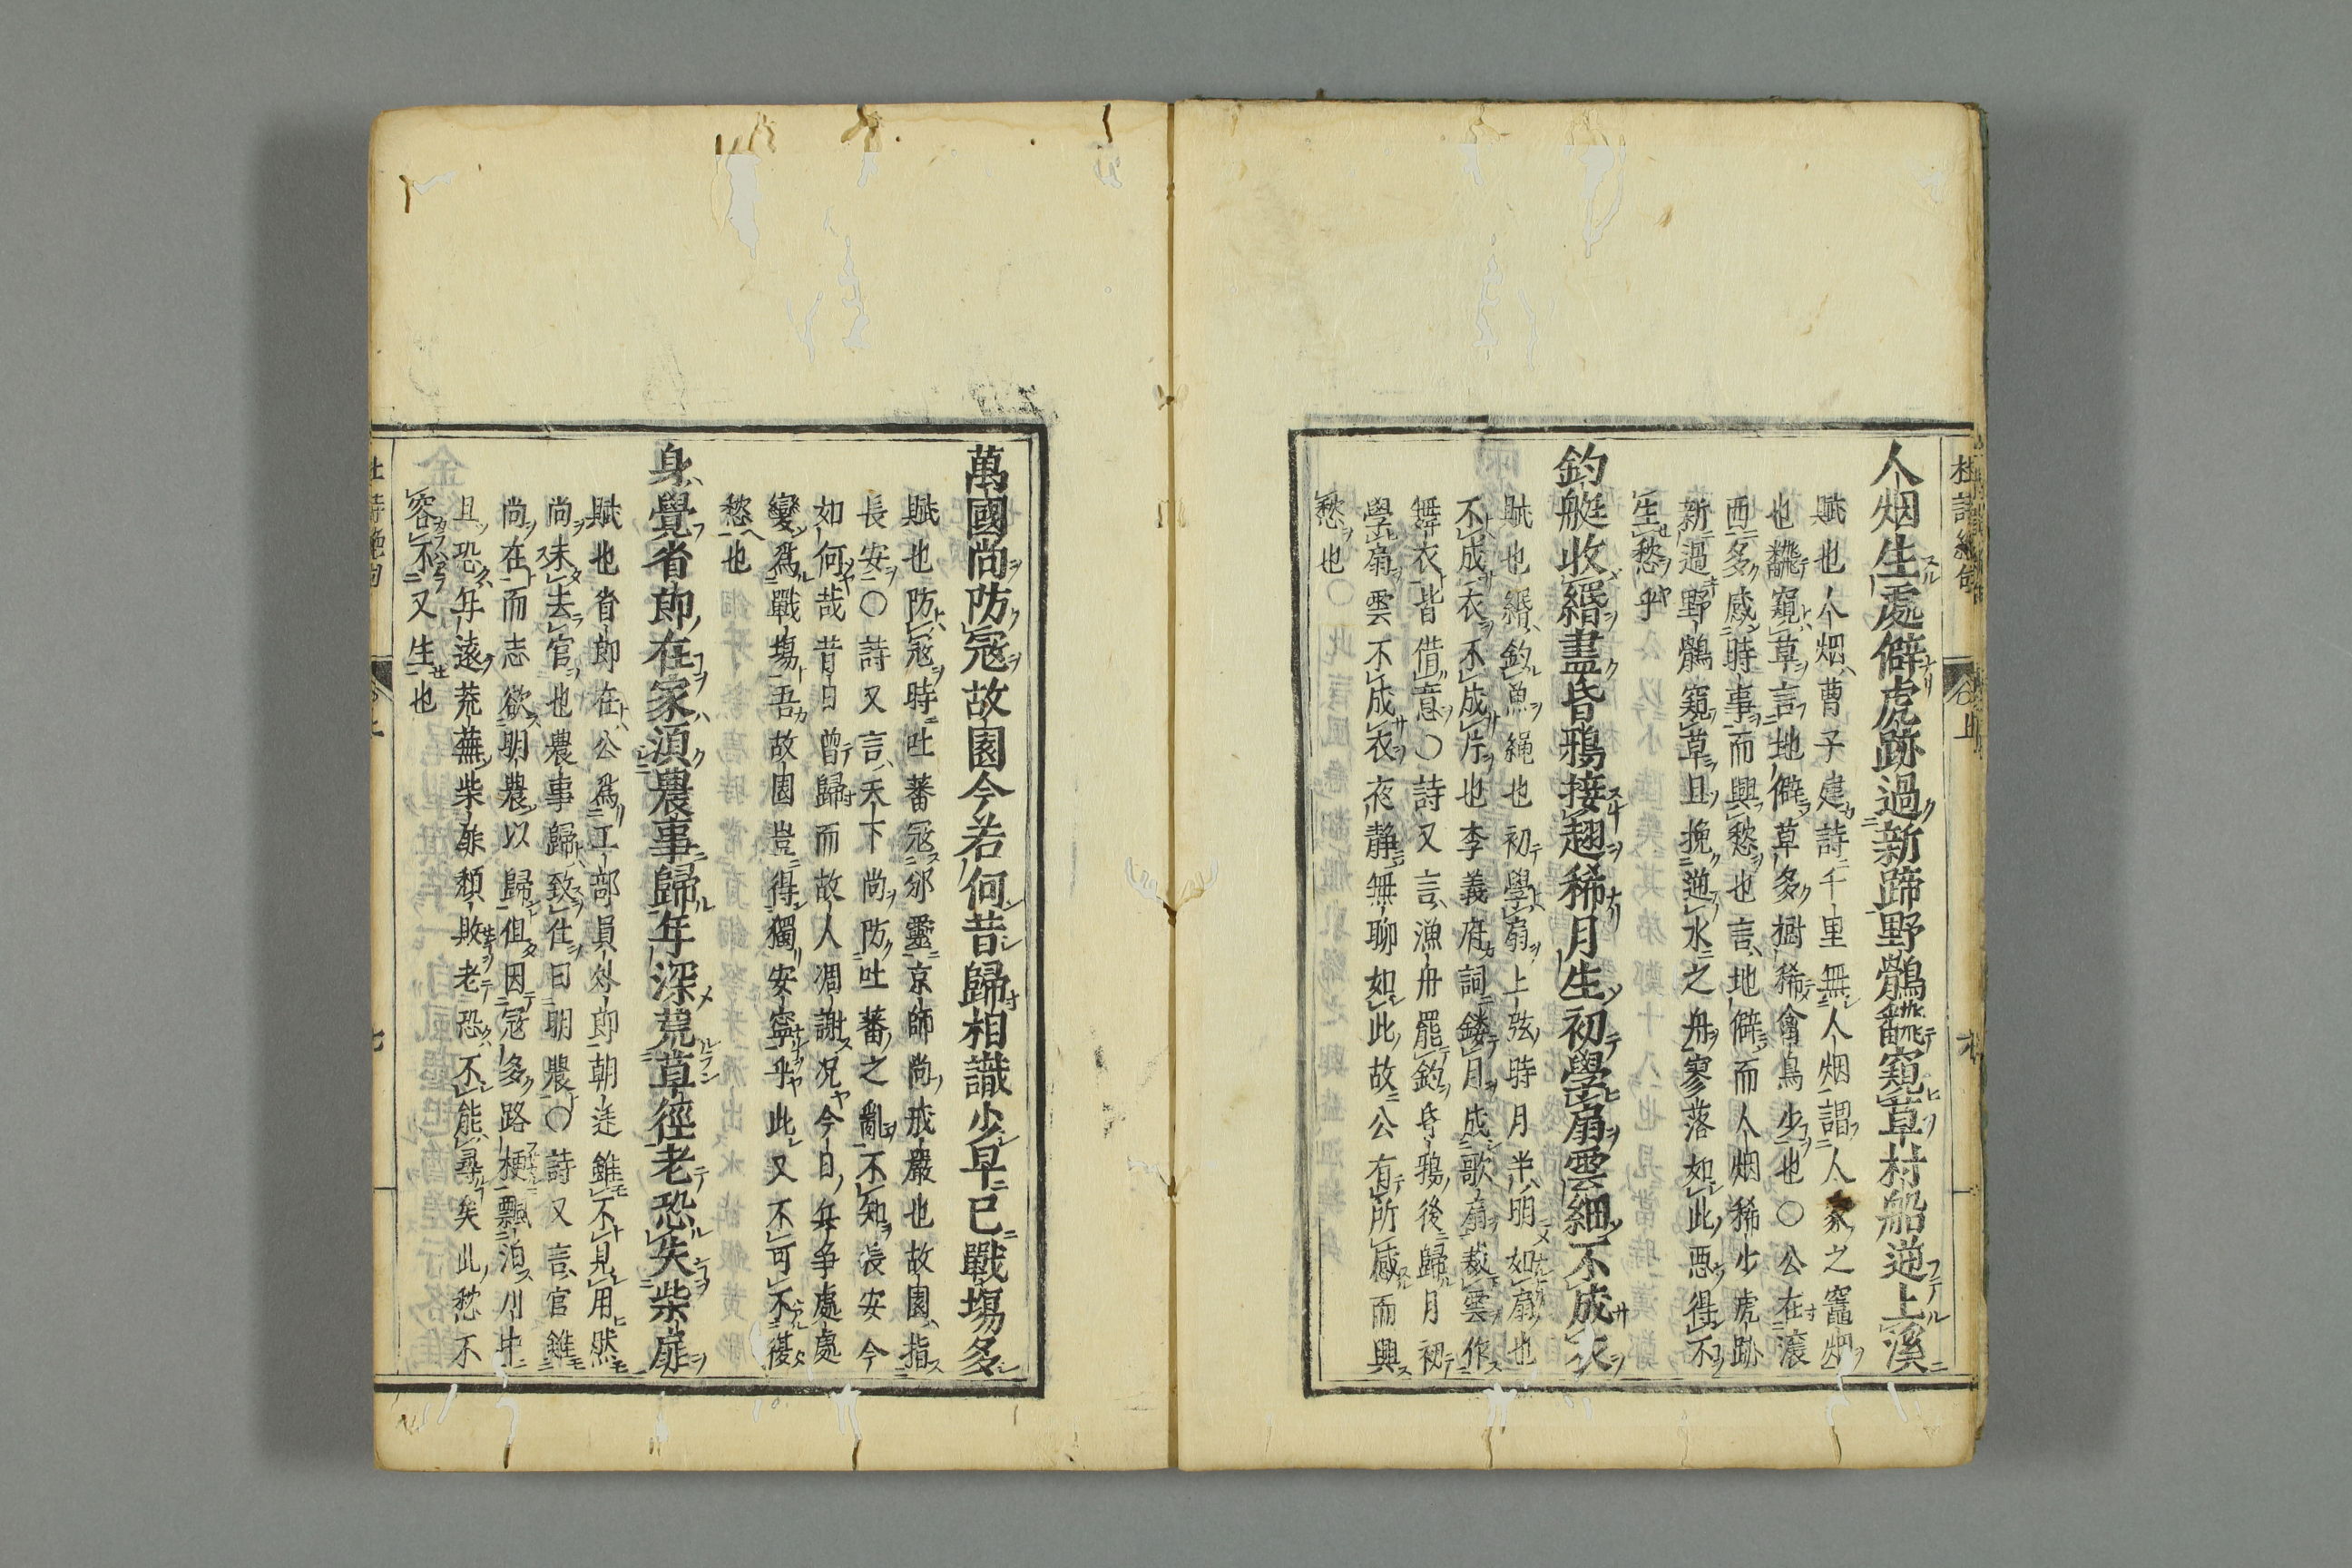 杜詩絶句
人烟生處僻虎跡過新蹄野鶻飜窺草村船逆上溪
賦也人烟曹子建詩千里無人烟謂人家之竈烟
也飜窺草言地僻草多樹稀禽鳥少也〇公在瀼
西多感時事而興愁也言地僻而人烟稀少虎跡
新過野鶻窺草且挽逆水之舟寥落如此悪得不
生愁乎
釣艇收緡盡昏鴉接翅稀月生初學扇雲細不成衣
賦也緡釣魚繩也初學扇上弦時月半明如扇也
不成衣不成片也李義府詞鏤月成歌扇裁雲作
舞衣皆借意〇詩又言漁舟罷釣昏鴉後歸月初
學扇雲不成衣夜静無聊如此故公有所感而興
愁也
萬國尚防冦故園今若何昔歸相識少早已戰塲多
賦也防冦時吐蕃冦邠靈京師尚戒嚴也故園指
長安〇詩又言天下尚防吐蕃之亂不知長安今
如何哉昔日曽歸而故人凋謝况今日兵争處處
變爲戰塲吾故園豈得獨安寧乎此又不可不復
愁也
身覺省郎在家湏農事歸年深荒草徑老恐失柴扉
賦也省郎在公爲工部員外郎朝廷雖不見用然
尚未去官也農事歸致仕曰明農〇詩又言官雖
尚在而志欲明農以歸但因冦多路梗飄泊川中
且恐年遠荒蕪柴扉頽敗老恐不能尋矣此愁不
容不又生也